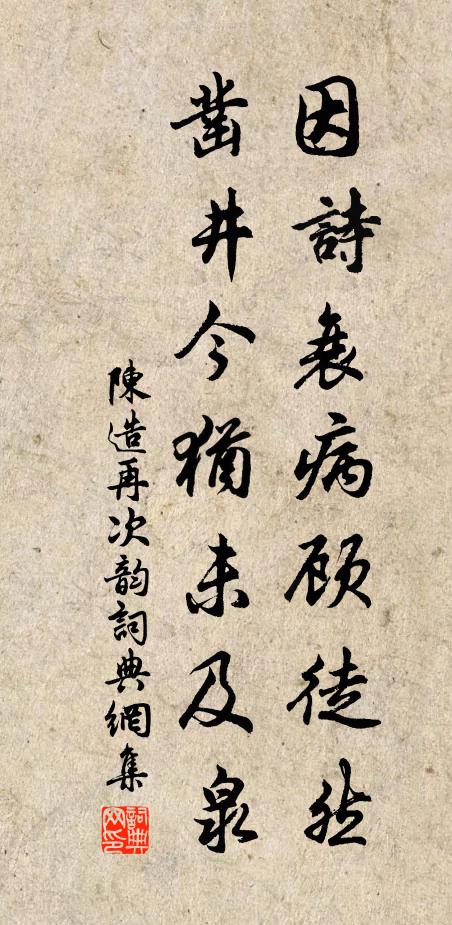 因詩衰病顾徒然
凿井今猶未及泉
陳造再次韵詞典網集
詞典网印